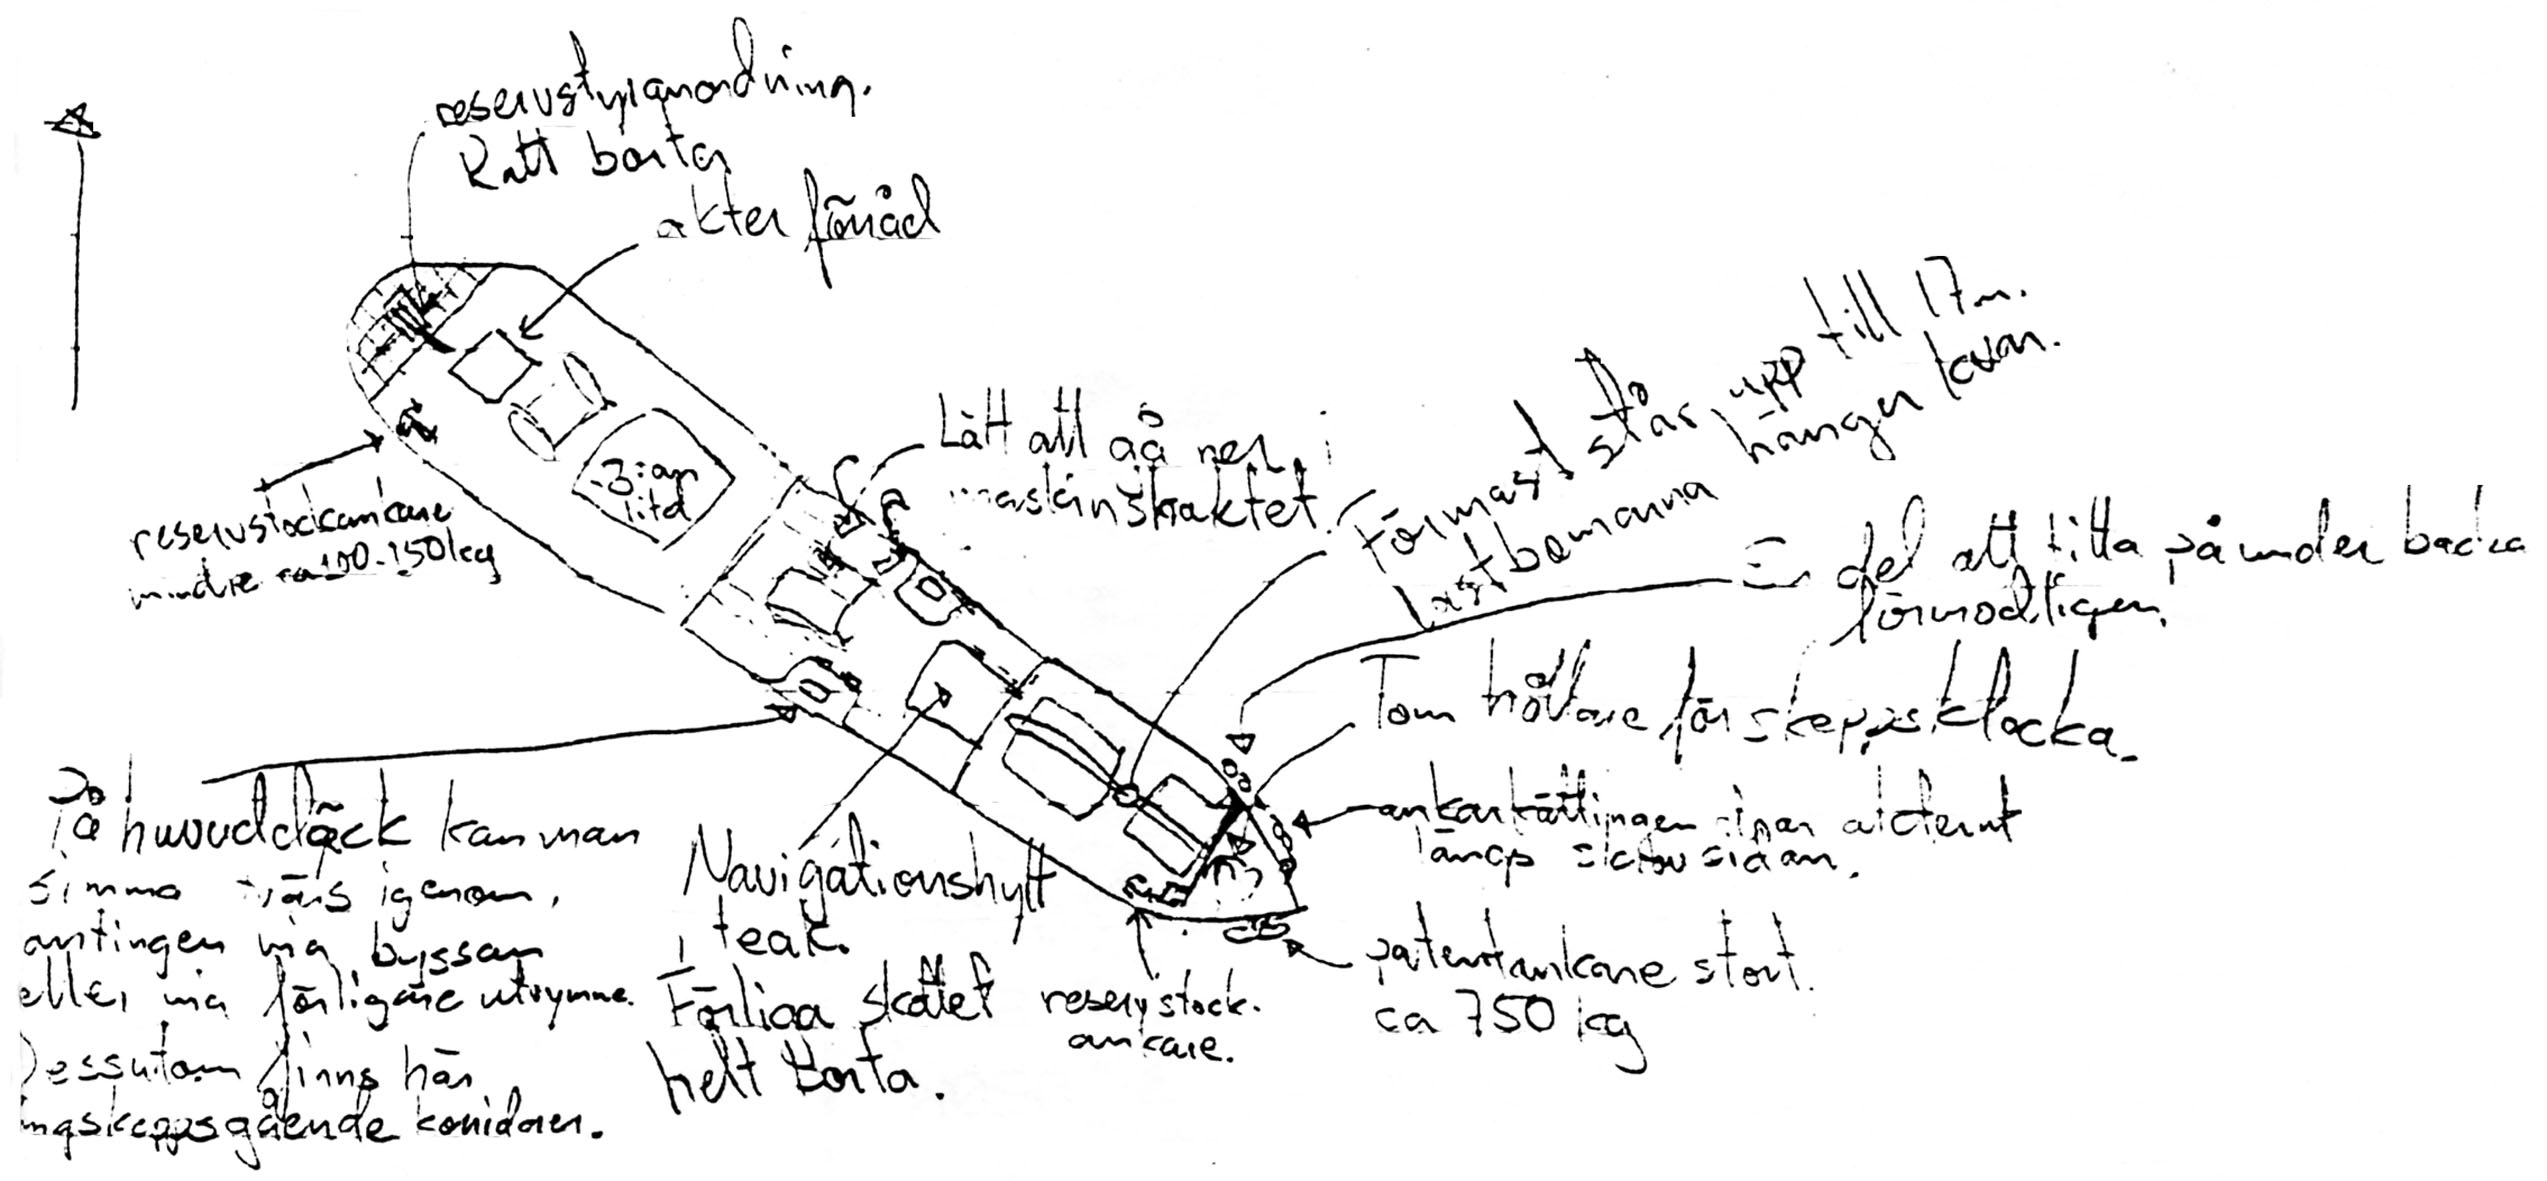 reservstyranordning.
Ratt borta
akter förråd
Lätt att gå ner i
maskinskaktet.
Förmast står upp till 17m.
Lastbommarna hänger kvar.
En del att titta på under backen
förmodligen.
3:an
reservstockankare
mindre ca 100-150kg
Tom hållare för skeppsklocka.
ankarkättingen löper akterut
längs skrovsidan.
patentankare stort.
ca 750 kg
På huvuddäck kan man
simma tvärs igenom,
antingen via byssan
eller via förligare utrymme.
Dessutom finns här
långskeppsgående korridorer.
Navigationshytt
i teak.
Förliga skottet
helt borta.
reservstock.
ankare.